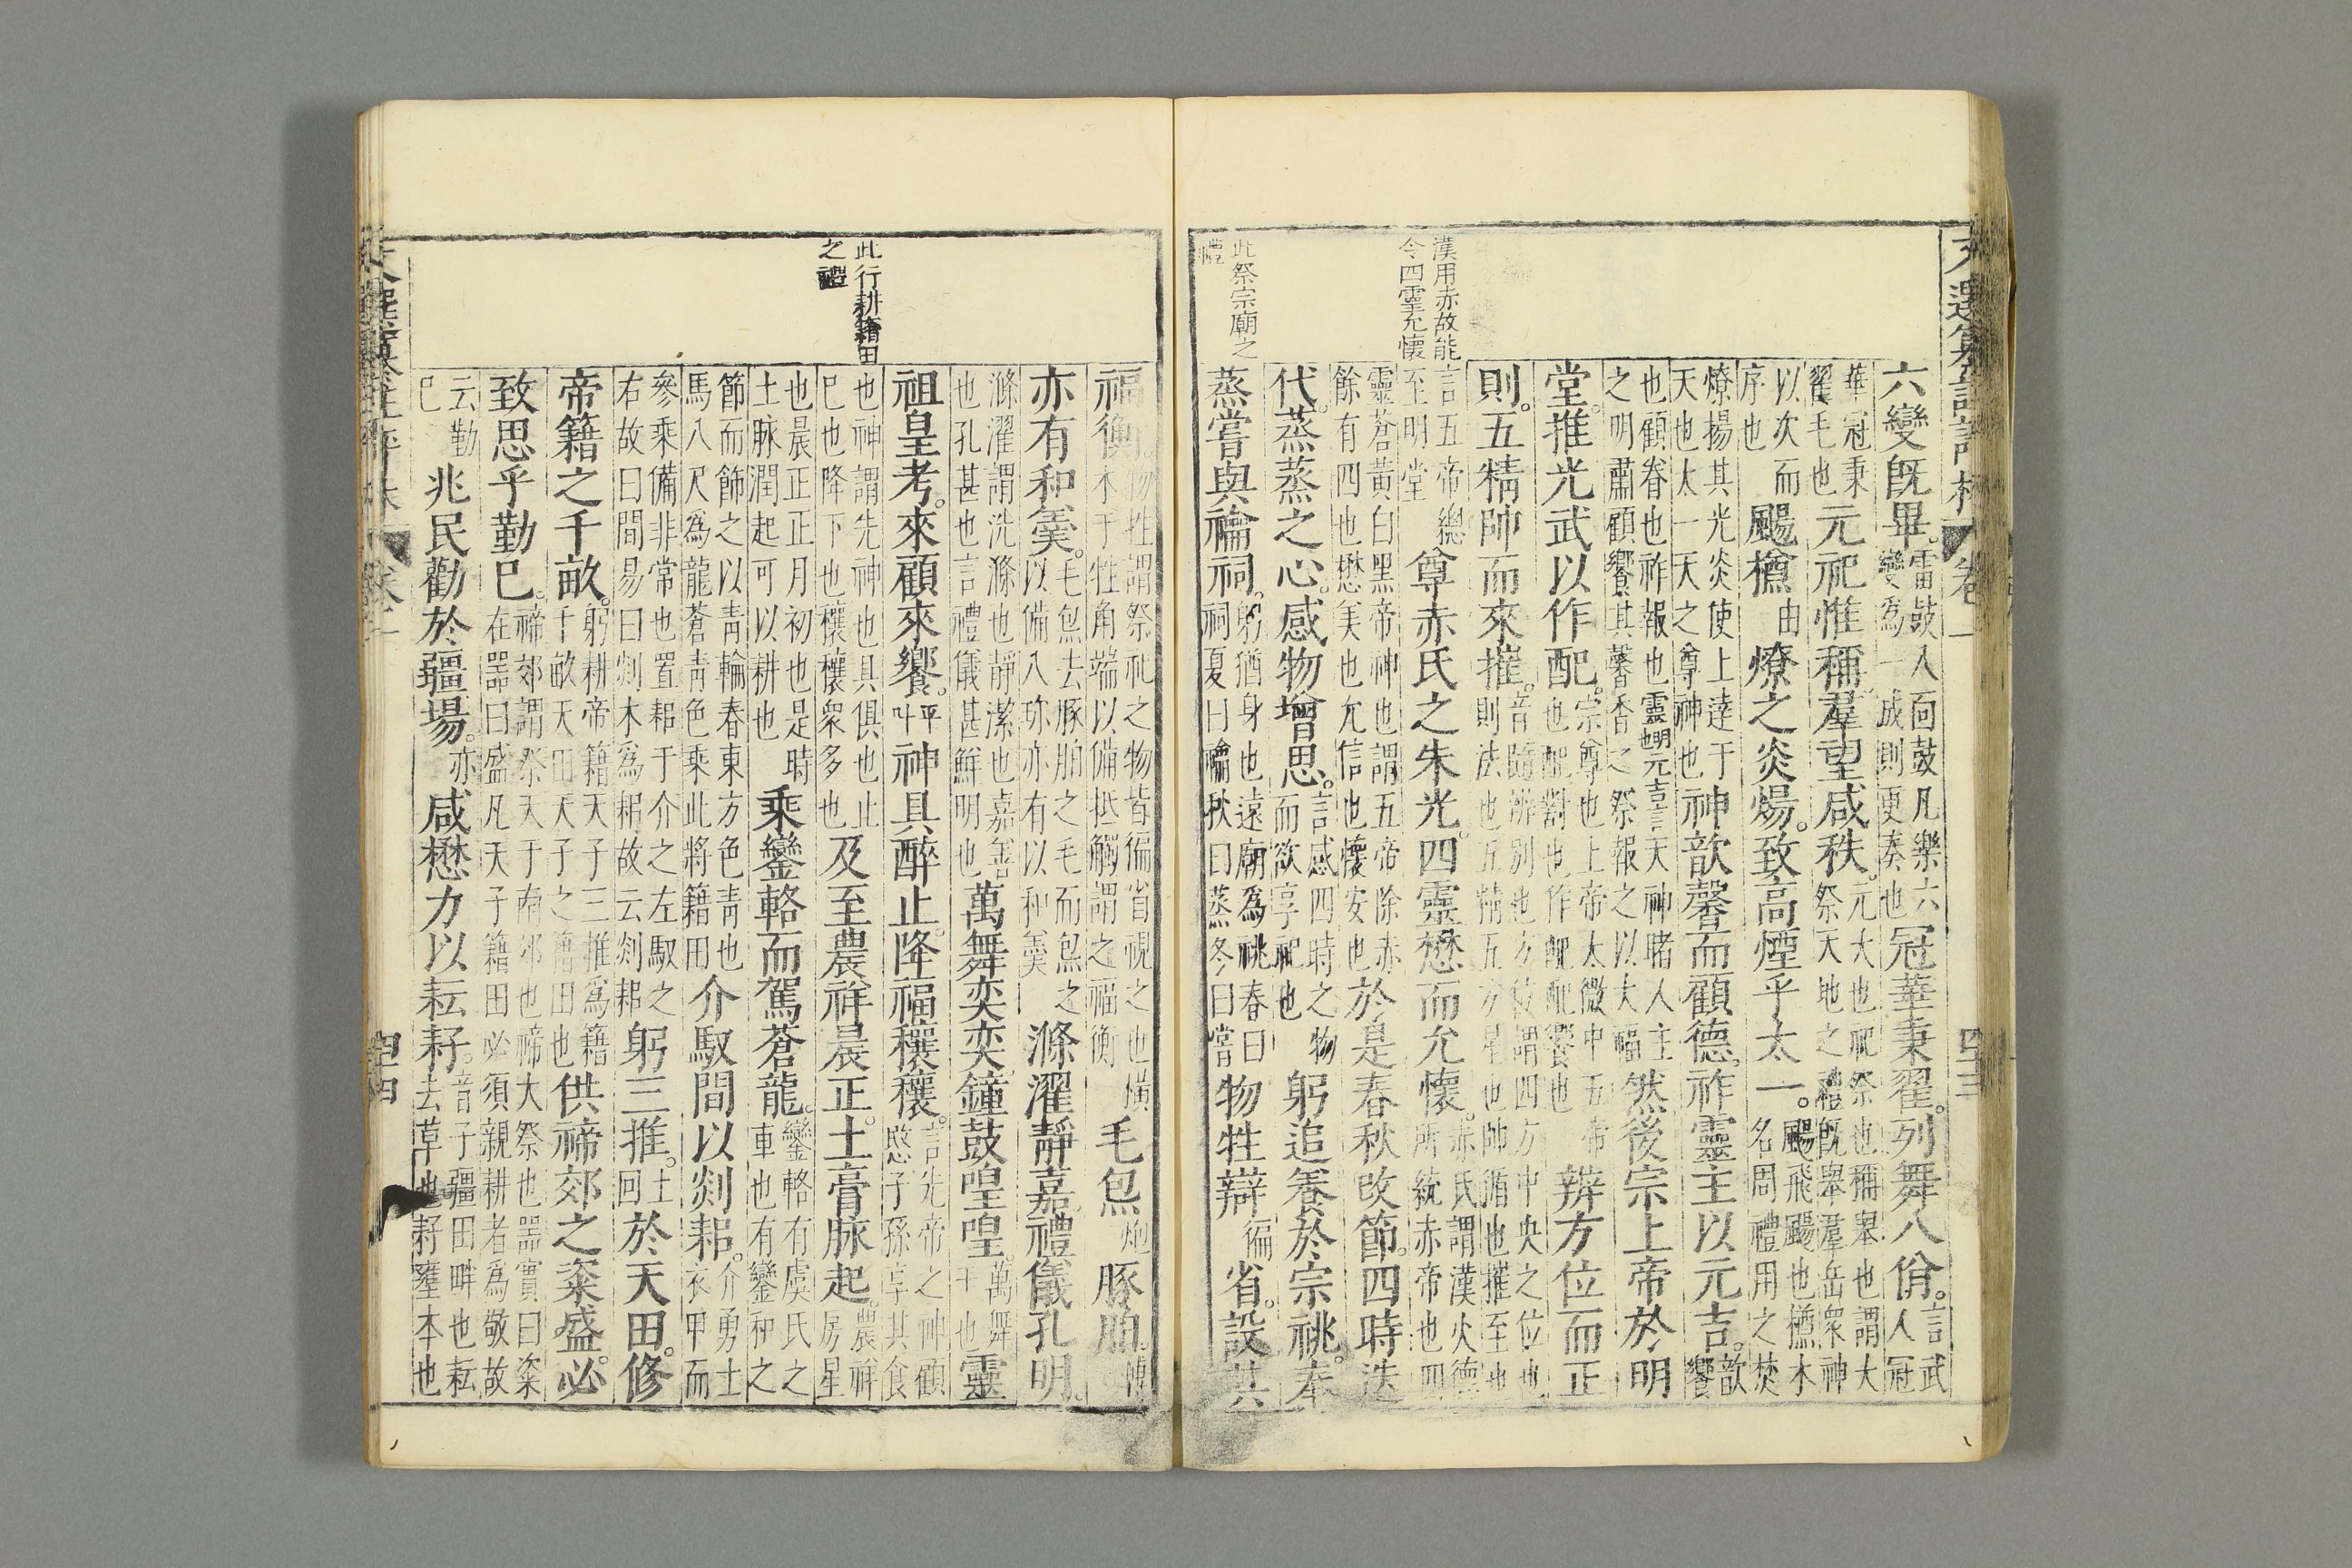 漢用赤故能
令四靈允懷
此祭宗廟之
禮
六變既畢。雷鼓八面鼓凡樂六變爲一成則更奏也冠華秉翟。列舞八佾。言武人冠
華冠秉翟毛也元祀惟稱。羣望咸秩。元大也祀祭也稱舉也謂大祭天地之禮既舉羣岳衆神
以次而序也颺槱由燎之炎煬。致高煙乎太一。颺飛颺也槱木名周禮用之焚
燎揚其光炎使上達于天也太一天之尊神也神歆馨而顧德。祚靈主以元吉。歆饗
也顧眷也祚報也靈明也元吉言天神睹人主之明肅顧饗其馨香之祭報之以大福然後宗上帝於明
堂。推光武以作配。宗尊也上帝太微中五帝也配對也作配配饗也辨方位而正
則。五精帥而來摧。音隨辨別也方位謂四方中央之位也則法也五精五方星也帥循也摧至也
言五帝總至明堂尊赤氏之朱光。四靈懋而允懷。赤氏謂漢火德所統赤帝也四
靈蒼黃白黑帝神也謂五帝除赤餘有四也懋美也允信也懷安也於是春秋改節。四時迭
代。蒸蒸之心。感物增思。言感四時之物而欲享祀也躬追養於宗祧。奉
蒸嘗與禴祠。躬猶身也遠廟爲祧春曰祠夏曰禴秋曰蒸冬曰嘗物牲辯徧省。設其
文選纂註評林 卷一 四十三
此行耕籍田
之禮
福衡。物牲謂祭祀之物皆徧省視之也橫木于牲角端以備抵觸謂之福衡毛炰炮豚胉。
亦有和羹。毛炰去豚胉之毛而炰之以備八珍亦有以和羹滌濯靜嘉。禮儀孔明。
滌濯謂洗滌也靜潔也嘉善也孔甚也言禮儀甚鮮明也萬舞奕奕。鐘鼓喤喤。萬舞干也靈
祖皇考。來顧來饗。叶平神具醉止。降福穰穰。言先帝之神顧愍子孫享其食
也神謂先神也具俱也止已也降下也穰穰衆多也及至農祥晨正。土膏脉起。農祥房星
也晨正正月初也是時土脉潤起可以耕也乘鑾輅而駕蒼龍。鑾輅有虞氏之車也有鑾和之
節而飾之以靑輪春東方色靑也馬八尺爲龍蒼靑色乘此將籍田介馭間以剡耜。介勇士衣甲而
參乘備非常也置耜于介之左馭之右故曰間易曰剡木爲耜故云剡耜躬三推。土回於天田。修
帝籍之千畝。躬耕帝籍天子三推爲籍千畝天田天子之籍田也供禘郊之粢盛。必
致思乎勤已。禘郊謂祭天于南郊也禘大祭也器實曰粢在器曰盛凡天子籍田必須親耕者爲敬故
云勤已兆民勸於疆場。亦咸懋力以耘耔。音子疆田畔也耘去草也耔壅本也
卷一